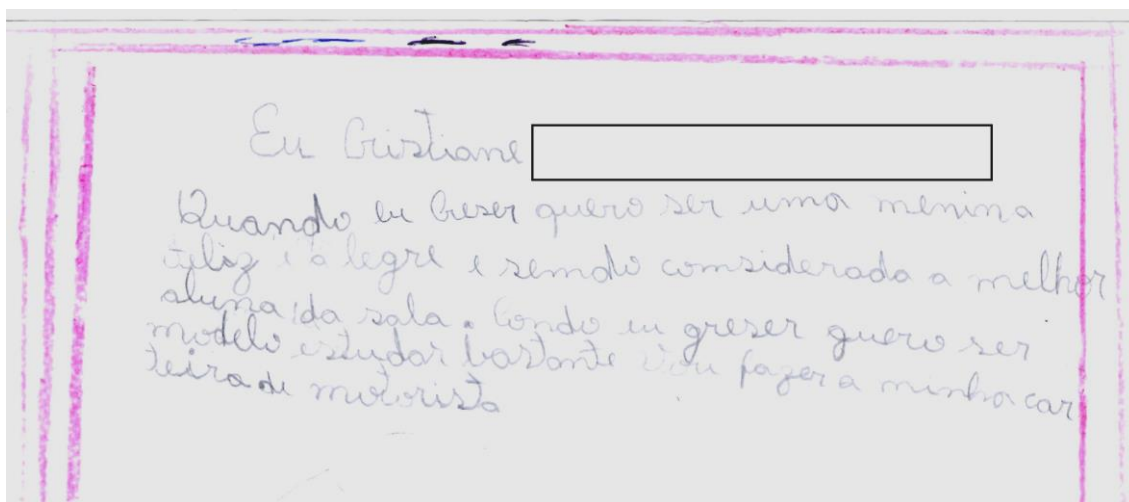 Eu Cristiane
Quando eu Creser quero ser uma menina
feliz e alegre e sendo considerada a melhor
aluna da sala. Condo eu greser quero ser
modelo estudar bastante vou fazer a minha car
teira de motorista